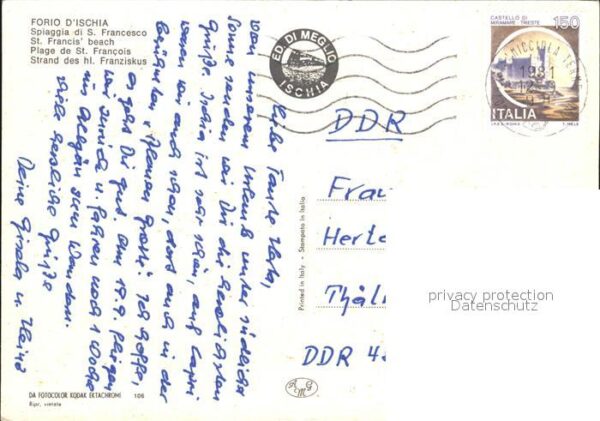 FORIO D'ISCHIA
Spiaggia di S. Francesco
St. Francis' beach
Plage de St. François
Strand des hl. Franziskus
Liebe Tante Herta,
von unserem Urlaub unter südlicher
Sonne senden wir Dir die herzlichsten
Grüße. Ischia ist sehr schön, auf Capri
waren wir auch schon, dort auch in der
Blauen Grotte! Ich hoffe,
es geht Dir gut. Am 19.9. fliegen
wir zurück u. fahren noch 1 Woche
ins Allgäu zum Wandern.
Viele herzliche Grüße
Deine Gisela u. Heinz
ED. DI MEGLIO
ISCHIA
CASTELLO DI
MIRAMARE - TRIESTE
150
1981
ITALIA
DDR
Frau
Herta
Thäl
DDR 4
Printed in Italy - Stampato in Italia
privacy protection
Datenschutz
DA FOTOCOLOR KODAK EKTACHROME 105
Ripr. vietata